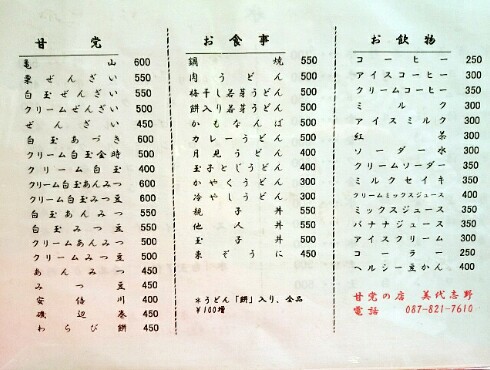 甘党
亀山 600
栗ぜんざい 550
白玉ぜんざい 550
クリームぜんざい 500
ぜんざい 450
白玉あづき 600
クリーム白玉金時 500
クリーム白玉 400
クリーム白玉あんみつ 600
クリーム白玉みつ豆 600
白玉あんみつ 550
白玉みつ豆 550
クリームあんみつ 500
クリームみつ豆 500
あんみつ 450
みつ豆 450
安倍川 400
磯辺巻 450
わらび餅 450
お食事
鍋焼 550
肉うどん 500
梅干し若芽うどん 500
餅入り若芽うどん 500
かもなんば 500
カレーうどん 500
月見うどん 400
玉子とじうどん 400
かやくうどん 300
冷やしうどん 300
親子丼 550
他人丼 550
玉子丼 500
栗ぞうに 450
※うどん「餅」入り、全品
￥100増
お飲物
コーヒー 250
アイスコーヒー 300
クリームコーヒー 350
ミルク 300
アイスミルク 300
紅茶 300
ソーダー水 300
クリームソーダー 350
ミルクセイキ 350
クリームミックスジュース 400
ミックスジュース 350
バナナジュース 350
アイスクリーム 300
コーラー 250
ヘルシー豆かん 400
甘党の店 美代志野
電話 087-821-7610